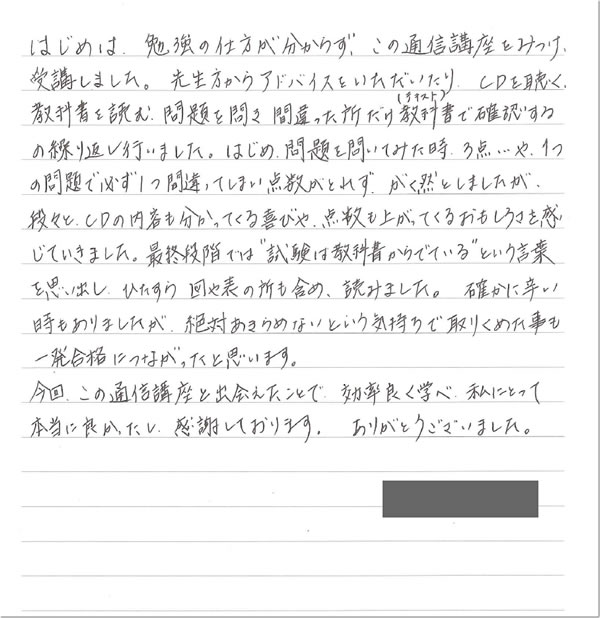 はじめは、勉強の仕方が分からず、この通信講座をみつけ、
受講しました。先生方からアドバイスをいただいたり、CDを聴く、
教科書を読む、問題を問き間違った所だけ教科書(テキスト)で確認する
の繰り返し行いました。はじめ、問題を問いてみた時、3点…や、1つ
の問題で必ず1つ間違ってしまい点数がとれず、がく然としましたが、
段々と、CDの内容も分かってくる喜びや、点数も上がってくるおもしろさを感
じていきました。最終段階では"試験は教科書からでている"という言葉
を思い出し、ひたすら図や表の所も含め、読みました。確かに辛い
時もありましたが、絶対あきらめないという気持ちで取りくめた事も
一発合格につながったと思います。
今回、この通信講座と出会えたことで、効率良く学べ、私にとって
本当に良かったし、感謝しております。ありがとうございました。